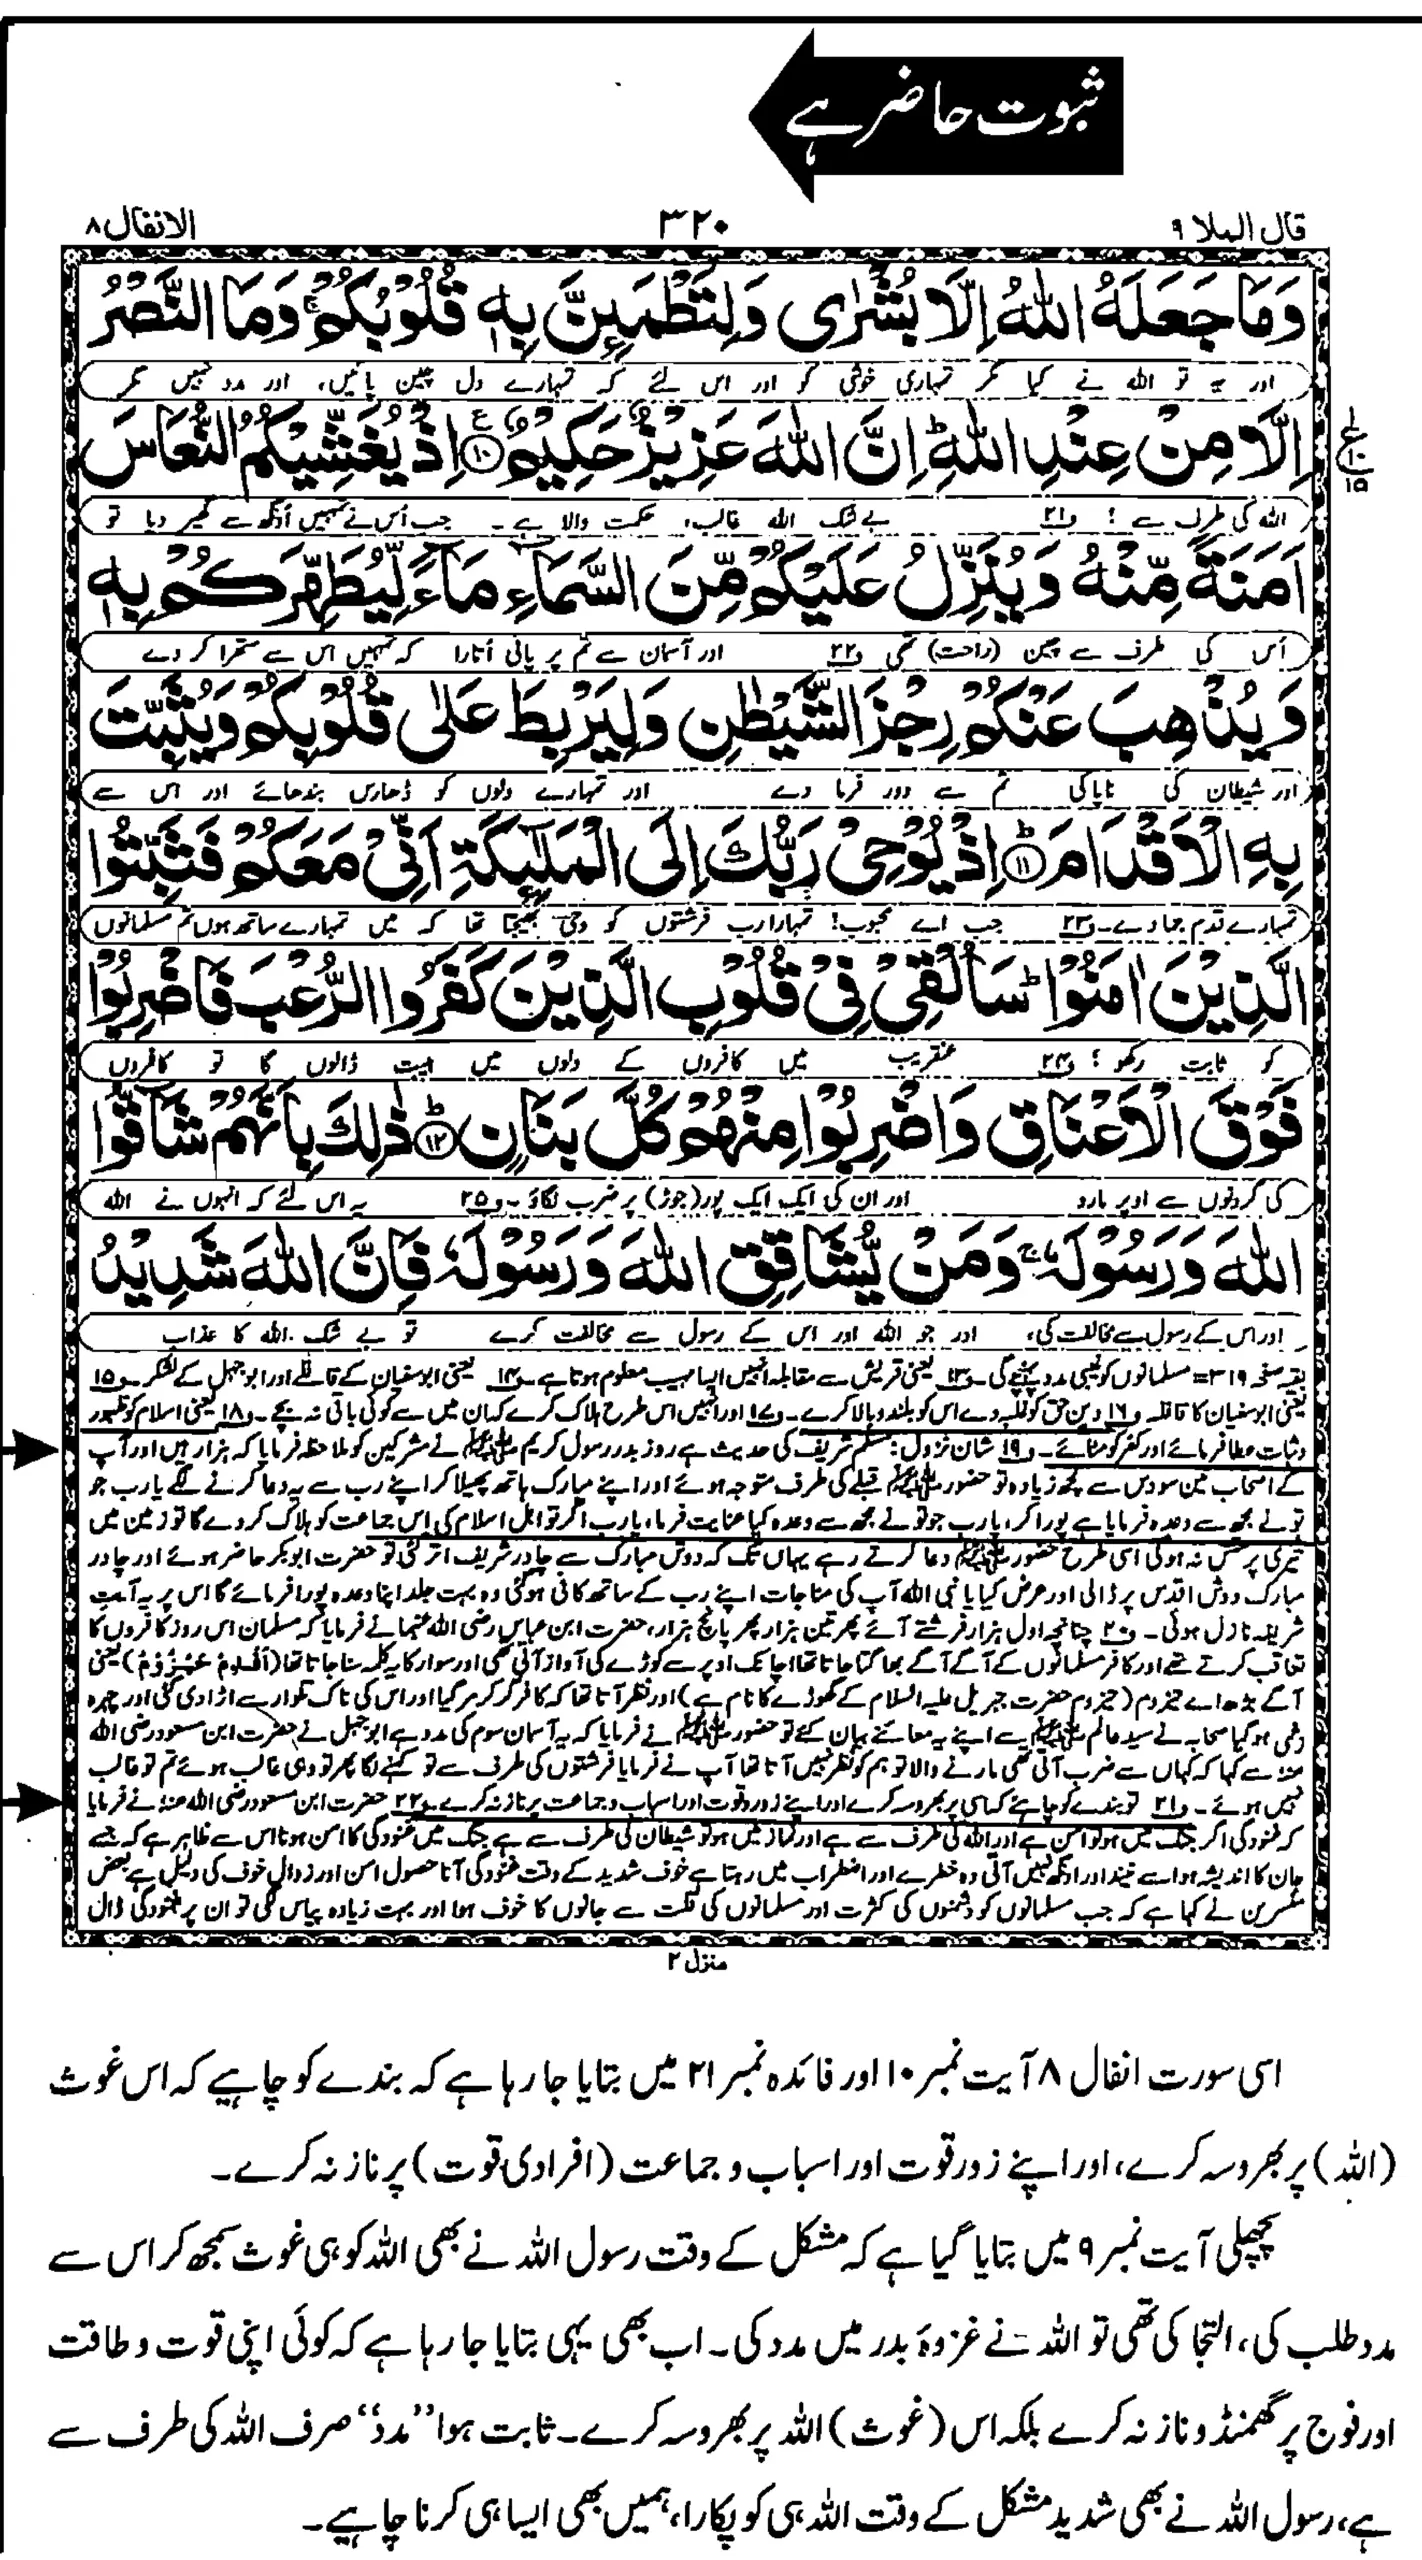 ثبوت حاضر ہے
قال الملا ۹
۳۲۰
الانفال ۸
وَمَا جَعَلَهُ اللّٰهُ اِلَّا بُشْرٰى وَلِتَطْمَىِٕنَّ بِهٖ قُلُوْبُكُمْ ۚ وَمَا النَّصْرُ
اور یہ تو اللہ نے کیا مگر تمہاری خوشی کو اور اس لئے کہ تمہارے دل چین پائیں، اور مدد نہیں مگر
اِلَّا مِنْ عِنْدِ اللّٰهِ ؕ اِنَّ اللّٰهَ عَزِيْزٌ حَكِيْمٌ ۝۱۰ اِذْ يُغَشِّيْكُمُ النُّعَاسَ
ع ۱۰ ۱۵
اللہ کی طرف سے ؛ و۲۱ بے شک اللہ غالب، حکمت والا ہے۔ جب اُس نے تمہیں اُونگھ سے گھیر دیا تو
اَمَنَةً مِّنْهُ وَيُنَزِّلُ عَلَيْكُمْ مِّنَ السَّمَآءِ مَآءً لِّيُطَهِّرَكُمْ بِهٖ
اُس کی طرف سے چین (راحت) تھی و۲۲ اور آسمان سے تم پر پانی اُتارا کہ تمہیں اس سے ستھرا کر دے
وَيُذْهِبَ عَنْكُمْ رِجْزَ الشَّيْطٰنِ وَلِيَرْبِطَ عَلٰى قُلُوْبِكُمْ وَيُثَبِّتَ
اور شیطان کی ناپاکی تم سے دور فرما دے اور تمہارے دلوں کو ڈھارس بندھائے اور اس سے
بِهِ الْاَقْدَامَ ؕ۝۱۱ اِذْ يُوْحِيْ رَبُّكَ اِلَى الْمَلٰٓىِٕكَةِ اَنِّيْ مَعَكُمْ فَثَبِّتُوا
تمہارے قدم جما دے۔ و۲۳ جب اے محبوب! تمہارا رب فرشتوں کو وحی بھیجتا تھا کہ میں تمہارے ساتھ ہوں تم مسلمانوں
الَّذِيْنَ اٰمَنُوْا ؕ سَاُلْقِيْ فِيْ قُلُوْبِ الَّذِيْنَ كَفَرُوا الرُّعْبَ فَاضْرِبُوْا
کو ثابت رکھو ؛ و۲۴ عنقریب میں کافروں کے دلوں میں ہیبت ڈالوں گا تو کافروں
فَوْقَ الْاَعْنَاقِ وَاضْرِبُوْا مِنْهُمْ كُلَّ بَنَانٍ ؕ۝۱۲ ذٰلِكَ بِاَنَّهُمْ شَآقُّوا
کی گردنوں سے اوپر مارو اور ان کی ایک ایک پور (جوڑ) پر ضرب لگاؤ ۔ و۲۵ یہ اس لئے کہ انہوں نے اللہ
اللّٰهَ وَرَسُوْلَهٗ ۚ وَمَنْ يُّشَاقِقِ اللّٰهَ وَرَسُوْلَهٗ فَاِنَّ اللّٰهَ شَدِيْدُ
اور اس کے رسول سے مخالفت کی، اور جو اللہ اور اس کے رسول سے مخالفت کرے تو بے شک اللہ کا عذاب
بقیہ صفحہ ۳۱۹= مسلمانوں کو غیبی مدد پہنچے گی۔ و۱۳ یعنی قریش سے مقابلہ انہیں ایسا مہیب معلوم ہوتا ہے۔ و۱۴ یعنی ابوسفیان کے قافلے اور ابوجہل کے لشکر۔ و۱۵
یعنی ابوسفیان کا قافلہ و۱۶ دین حق کو غلبہ دے اس کو بلند و بالا کرے۔ و۱۷ اور انہیں اس طرح ہلاک کرے کہ ان میں سے کوئی باقی نہ بچے۔ و۱۸ یعنی اسلام کو ظہور
و ثبات عطا فرمائے اور کفر کو مٹائے۔ و۱۹ شان نزول: مسلم شریف کی حدیث ہے روز بدر رسول کریم ﷺ نے مشرکین کو ملاحظہ فرمایا کہ ہزار ہیں اور آپ
کے اصحاب تین سو دس سے کچھ زیادہ تو حضور ﷺ قبلے کی طرف متوجہ ہوئے اور اپنے مبارک ہاتھ پھیلا کر اپنے رب سے یہ دعا کرنے لگے یارب جو
تو نے مجھ سے وعدہ فرمایا ہے پورا کر، یارب جو تو نے مجھ سے وعدہ کیا عنایت فرما، یارب اگر تو اہل اسلام کی اس جماعت کو ہلاک کر دے گا تو زمین میں
تیری پرستش نہ ہوگی اسی طرح حضور ﷺ دعا کرتے رہے یہاں تک کہ دوش مبارک سے چادر شریف اتر گئی تو حضرت ابوبکر حاضر ہوئے اور چادر
مبارک دوش اقدس پر ڈالی اور عرض کیا یا نبی اللہ آپ کی مناجات اپنے رب کے ساتھ کافی ہوگئی وہ بہت جلد اپنا وعدہ پورا فرمائے گا اس پر یہ آیت
شریفہ نازل ہوئی۔ و۲۰ چنانچہ اول ہزار فرشتے آئے پھر تین ہزار پھر پانچ ہزار، حضرت ابن عباس رضی اللہ عنہما نے فرمایا کہ مسلمان اس روز کافروں کا
تعاقب کرتے تھے اور کافر مسلمانوں کے آگے آگے بھاگا جاتا تھا اچانک اوپر سے کوڑے کی آواز آتی تھی اور سوار کا یہ کلمہ سنا جاتا تھا (اَقْدِمْ حَيْزُوْمُ) یعنی
آگے بڑھ اے حیزوم (حیزوم حضرت جبریل علیہ السلام کے گھوڑے کا نام ہے) اور نظر آتا تھا کہ کافر گر کر مر گیا اور اس کی ناک تلوار سے اڑا دی گئی اور چہرہ
زخمی ہوگیا صحابہ نے سید عالم ﷺ سے اپنے یہ معائنے بیان کئے تو حضور ﷺ نے فرمایا کہ یہ آسمان سوم کی مدد ہے ابوجہل نے حضرت ابن مسعود رضی اللہ
عنہ سے کہا کہ کہاں سے ضرب آتی تھی مارنے والا تو ہم کو نظر نہیں آتا تھا آپ نے فرمایا فرشتوں کی طرف سے تو کہنے لگا پھر تو وہی غالب ہوئے تم تو غالب
نہیں ہوئے۔ و۲۱ تو بندے کو چاہئے کہ اسی پر بھروسہ کرے اور اپنے زور و قوت اور اسباب و جماعت پر ناز نہ کرے۔ و۲۲ حضرت ابن مسعود رضی اللہ عنہ نے فرمایا
کہ غنودگی اگر جنگ میں ہو تو امن ہے اور اللہ کی طرف سے ہے اور نماز میں ہو تو شیطان کی طرف سے ہے جنگ میں غنودگی کا امن ہونا اس سے ظاہر ہے کہ جسے
جان کا اندیشہ ہو اسے نیند اور اونگھ نہیں آتی وہ خطرے اور اضطراب میں رہتا ہے خوف شدید کے وقت غنودگی آنا حصول امن اور زوال خوف کی دلیل ہے بعض
مفسرین نے کہا ہے کہ جب مسلمانوں کو دشمنوں کی کثرت اور مسلمانوں کی قلت سے جانوں کا خوف ہوا اور بہت زیادہ پیاس لگی تو ان پر غنودگی ڈال
منزل ۲
اسی سورت انفال ۸ آیت نمبر ۱۰ اور فائدہ نمبر ۲۱ میں بتایا جا رہا ہے کہ بندے کو چاہیے کہ اس غوث
(اللہ) پر بھروسہ کرے، اور اپنے زور قوت اور اسباب و جماعت (افرادی قوت) پر ناز نہ کرے۔
پچھلی آیت نمبر ۹ میں بتایا گیا ہے کہ مشکل کے وقت رسول اللہ نے بھی اللہ کو ہی غوث سمجھ کر اس سے
مدد طلب کی، التجا کی تھی تو اللہ نے غزوہ بدر میں مدد کی۔ اب بھی یہی بتایا جا رہا ہے کہ کوئی اپنی قوت و طاقت
اور فوج پر گھمنڈ و ناز نہ کرے بلکہ اس (غوث) اللہ پر بھروسہ کرے۔ ثابت ہوا ”مدد“ صرف اللہ کی طرف سے
ہے، رسول اللہ نے بھی شدید مشکل کے وقت اللہ ہی کو پکارا، ہمیں بھی ایسا ہی کرنا چاہیے۔